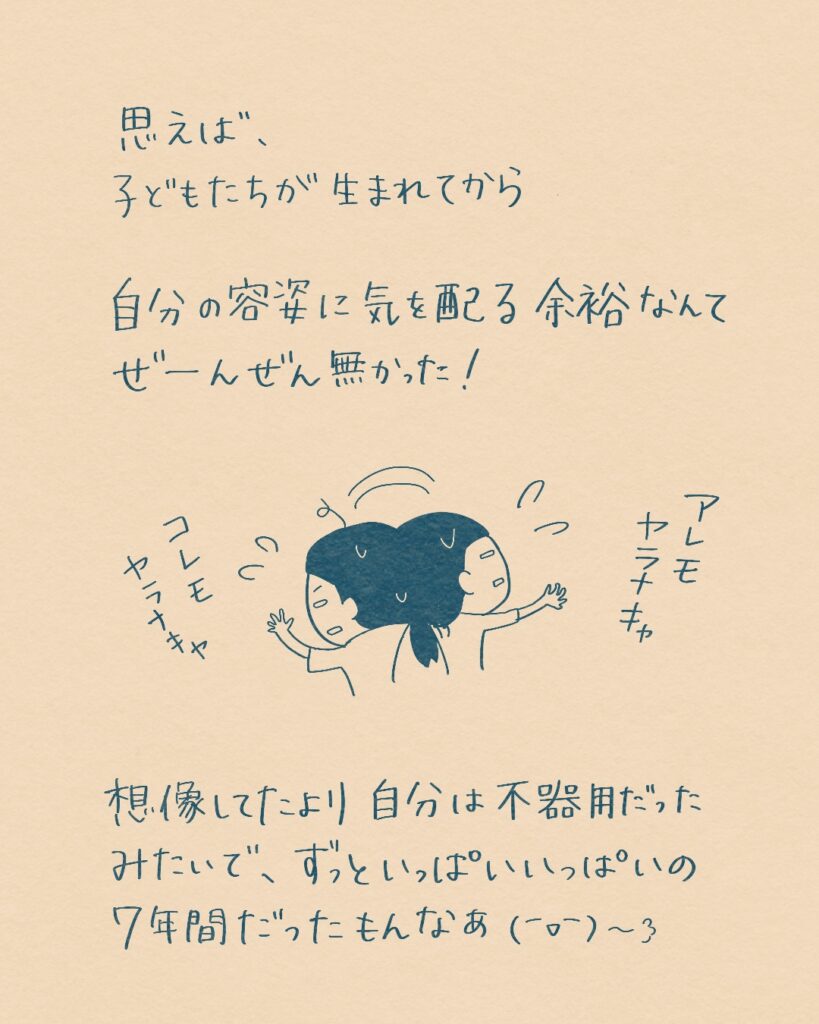 思えば、
子どもたちが生まれてから
自分の容姿に気を配る余裕なんて
ぜーんぜん無かった！
アレモ
ヤラナキャ
コレモ
ヤラナキャ
想像してたより自分は不器用だった
みたいで、ずっといっぱいいっぱいの
7年間だったもんなぁ(ｰ▽ｰ)～3